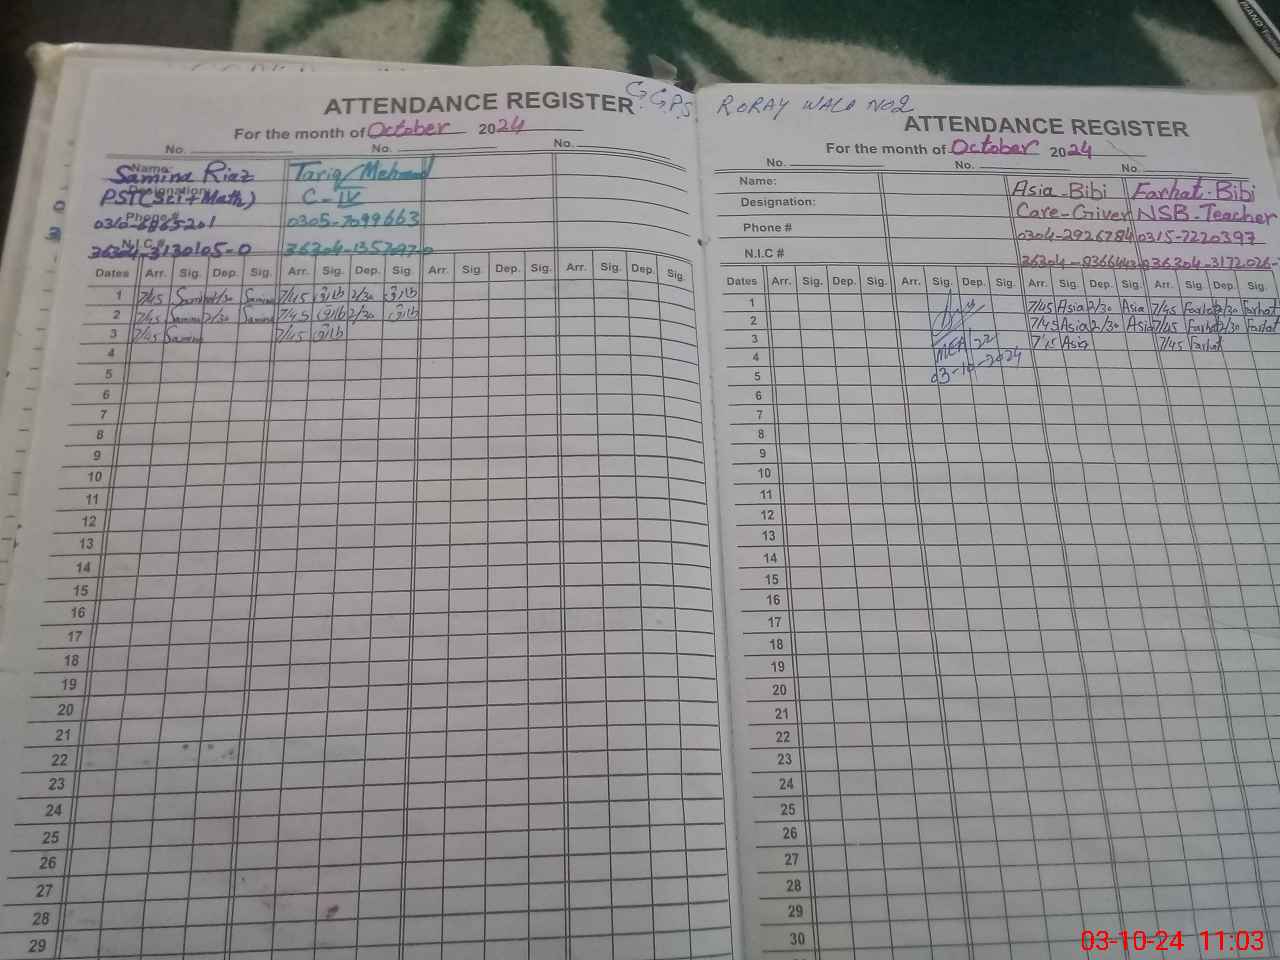 G.G.PS RORAY WALA NO2
ATTENDANCE REGISTER
For the month of October 2024
No. No. No.
Name: Samina Riaz Tariq Mehmood
Designation: PST(Sci+Math) C-IV
Phone # 0305-7099663
N.I.C #
Dates Arr. Sig. Dep. Sig. Arr. Sig. Dep. Sig. Arr. Sig. Dep. Sig. Arr. Sig. Dep. Sig.
1 7/45 Samina 2/30 Samina 7/45 2/30
2 7/45 Samina 2/30 Samina 7/45 2/30
3 7/45 Samina 7/45
4
5
6
7
8
9
10
11
12
13
14
15
16
17
18
19
20
21
22
23
24
25
26
27
28
29
ATTENDANCE REGISTER
For the month of October 2024
No. No. No.
Name: Asia Bibi Farhat Bibi
Designation: Care-Giver NSB-Teacher
Phone # 0304-2926784 0315-7220397
N.I.C #
Dates Arr. Sig. Dep. Sig. Arr. Sig. Dep. Sig. Arr. Sig. Dep. Sig. Arr. Sig. Dep. Sig.
1 7/45 Asia 2/30 Asia 7/45 Farhat 2/30 Farhat
2 7/45 Asia 2/30 Asia 7/45 Farhat 2/30 Farhat
3 MEA 22 Asia 7/45 Farhat
4 03-10-2024
5
6
7
8
9
10
11
12
13
14
15
16
17
18
19
20
21
22
23
24
25
26
27
28
29
30
03-10-24 11:03